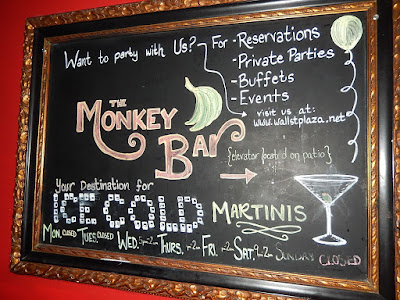 Want to party with Us? For - Reservations
- Private Parties
- Buffets
- Events
visit us at:
www.wallstplaza.net
THE
MONKEY
BAR
{elevator located on patio}
Your Destination for
ICE COLD MARTINIS
MON. CLOSED TUES. CLOSED WED. 5pm-2am THURS. FRI. SAT. SUNDAY CLOSED